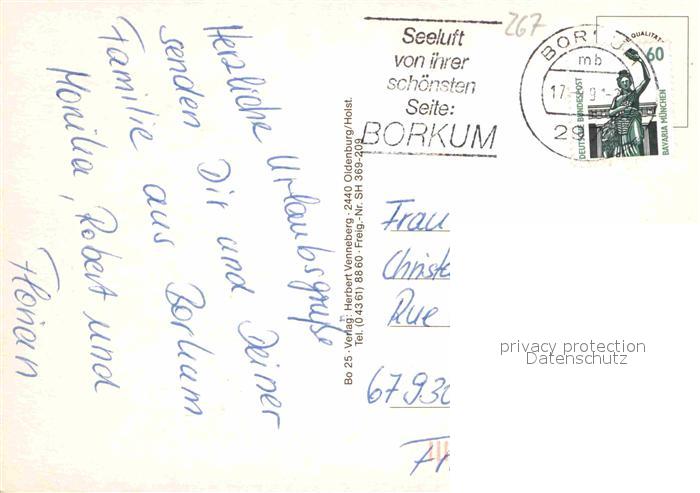 Herzliche Urlaubsgrüße
senden Dir und Deiner
Familie aus Borkum
Monika, Robert und
Florian
Bo 25 · Verlag: Herbert Venneberg · 2440 Oldenburg/Holst.
Tel. (0 43 61) 88 60 · Freig.-Nr. SH 369-209
267
Seeluft
von ihrer
schönsten
Seite:
BORKUM
BORKUM
mb
17.
29
QUALITÄT
60
DEUTSCHE BUNDESPOST
BAVARIA MÜNCHEN
Frau
Christ
Rue
6793
privacy protection
Datenschutz